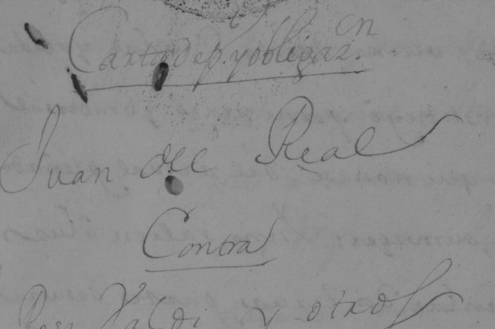 Carta de p. y obligaz.on
Juan del Real
Contra
Valdi y otros